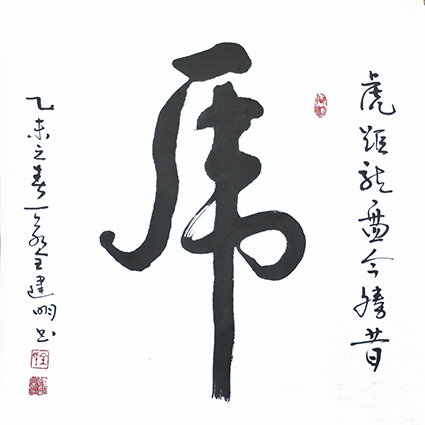 虎踞龙盘今勝昔
虎
乙未之春全建明书